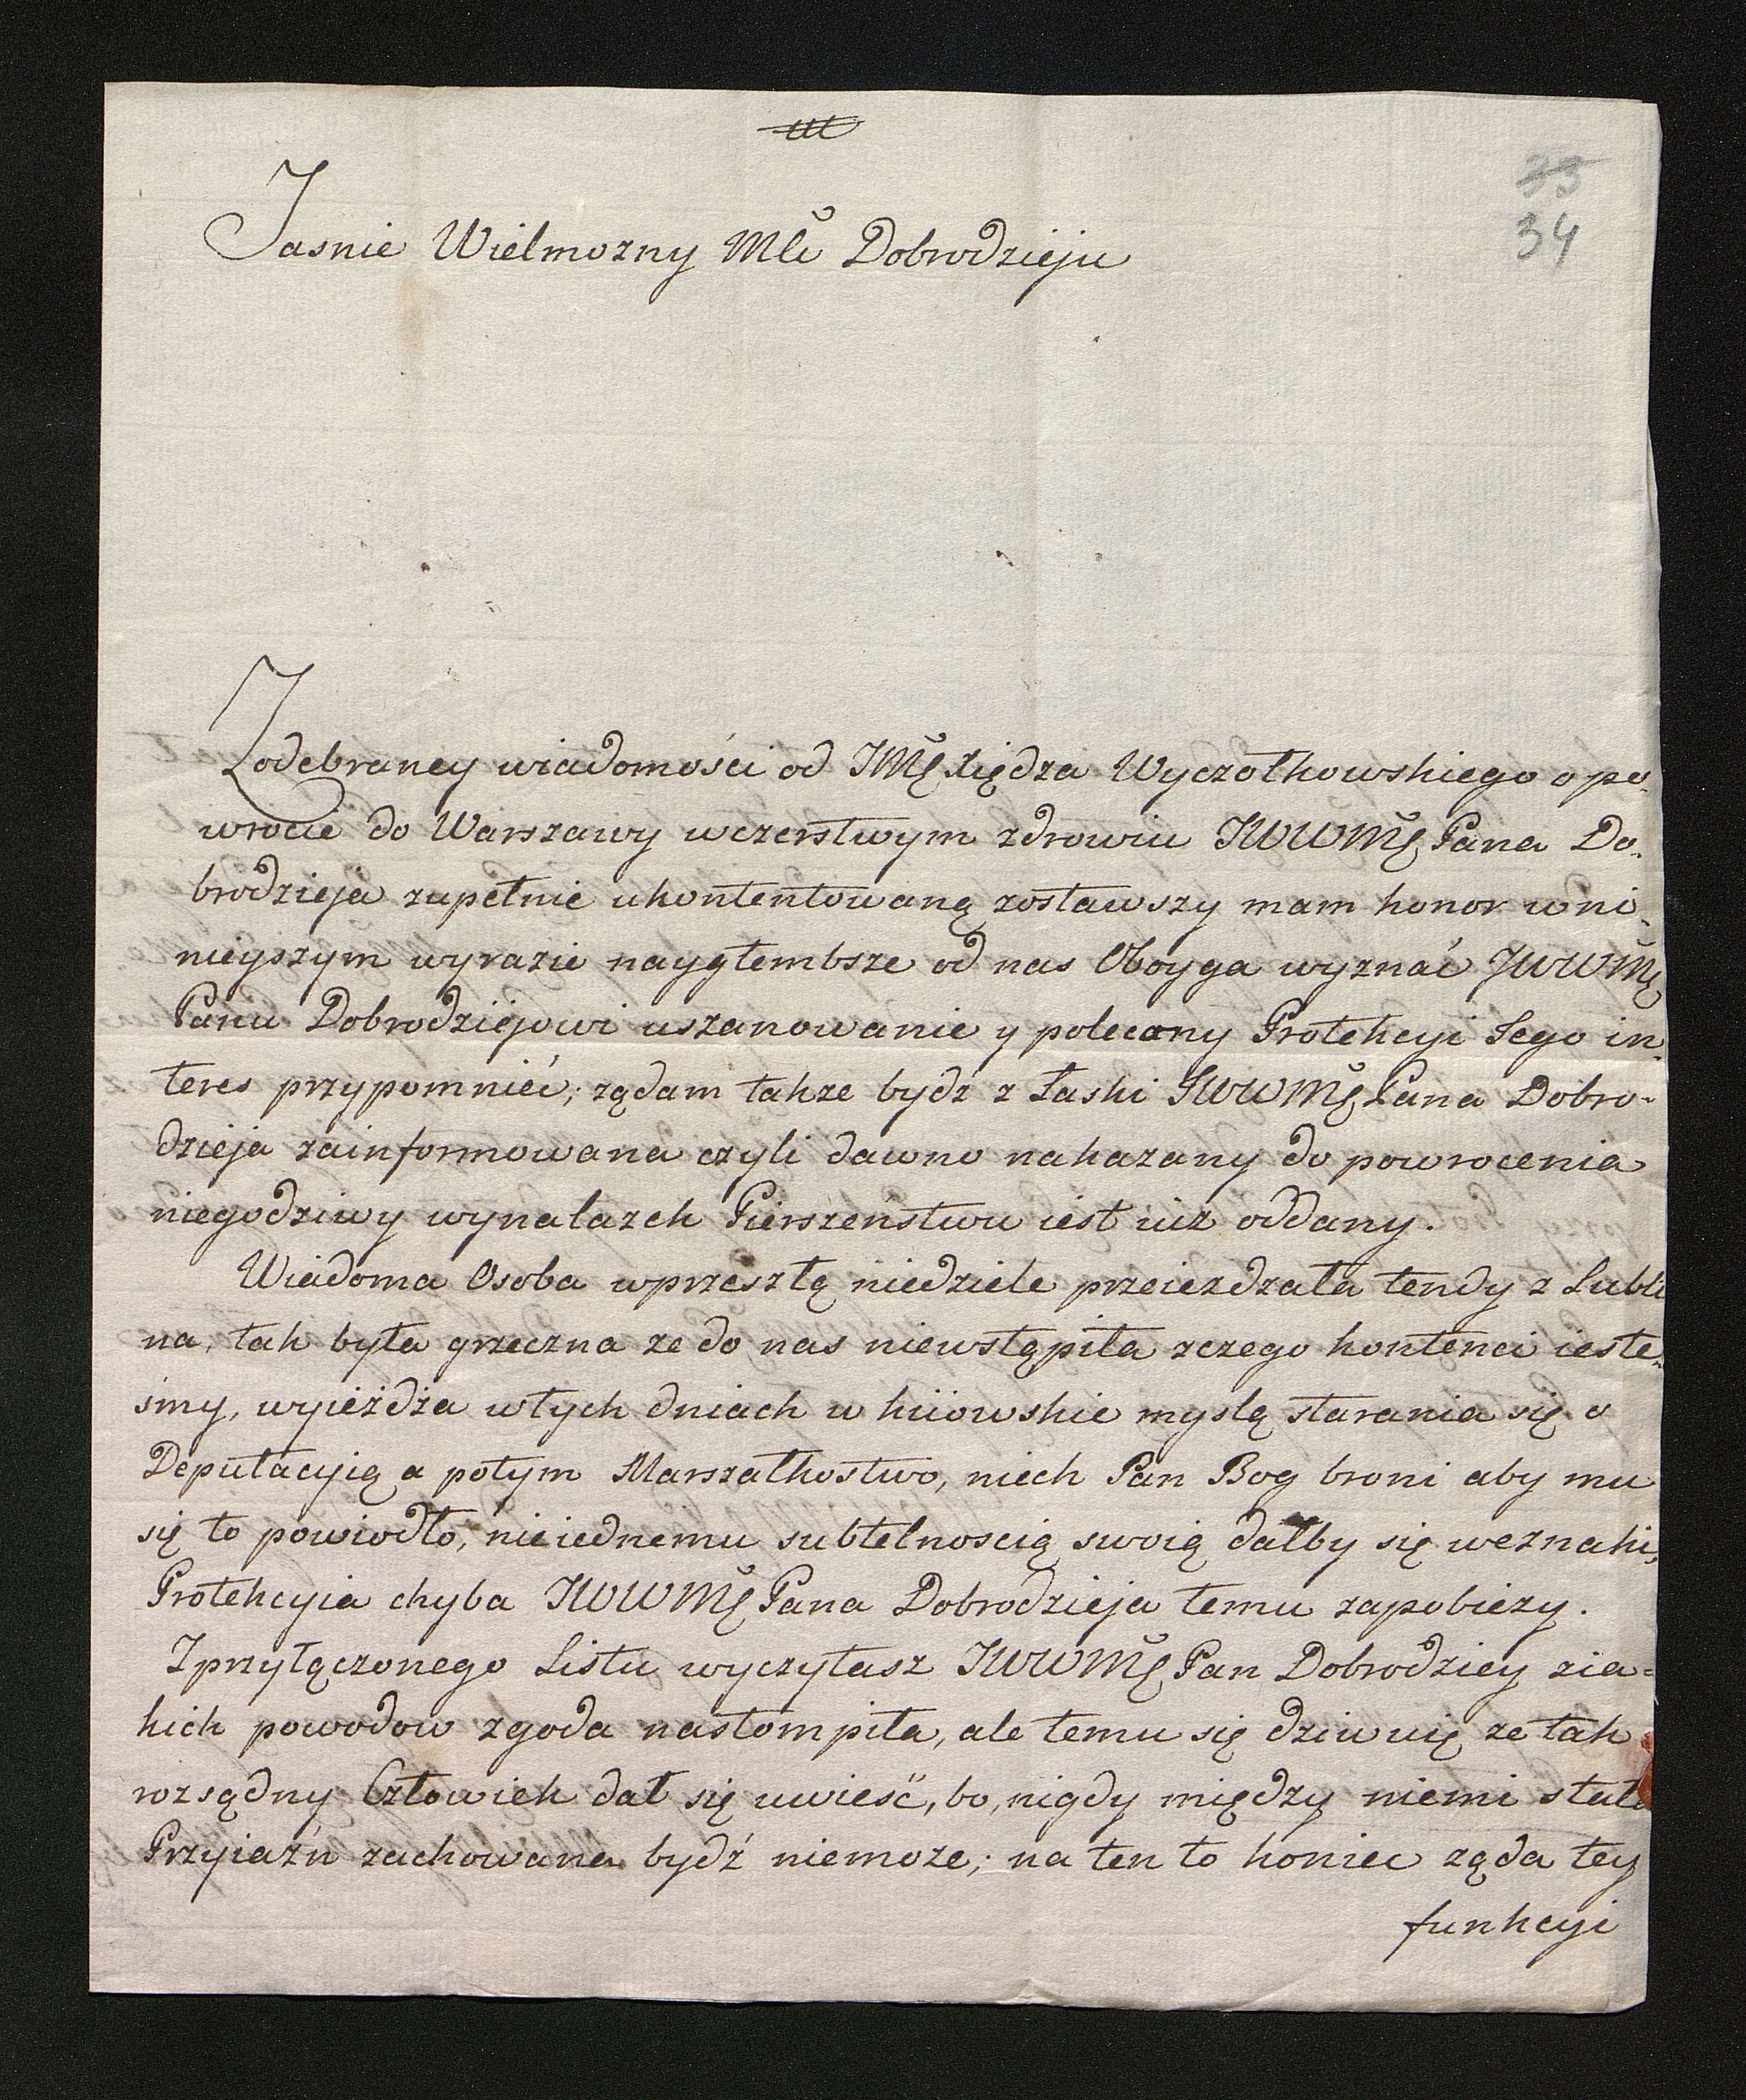 35
34
Jasnie Wielmozny Mci Dobrodzieju
Z odebraney wiadomości od JMę Xiędza Wyczołkowskiego o po-
wrocie do Warszawy wczerstwym zdrowiu JWWMę Pana Do-
brodzieja zupełnie ukontentowaną zostawszy mam honor wni-
nieyszym wyrazie naygłembsze od nas Oboyga wyznać JWWMę
Panu Dobrodziejowi uszanowanie y polecony Protekcyi Jego in-
teres przypomnieć; ządam takze bydz z Łaski JWWMę Pana Dobro-
dzieja zainformowana czyli dawno nakazany do powrocenia
niegodziwy wynalazek Pierszeństwu iest iuz oddany.
Wiadoma Osoba wprzeszłą niedziele przeiezdzała tendy z Lubli
na, tak była grzeczna ze do nas niewstąpiła zczego kontenci ieste-
śmy, wyieżdża wtych dniach w kiiowskie myslą starania się o
Deputacyią a potym Marszałkostwo, niech Pan Bog broni aby mu
się to powiodło, nieiednemu subtelnoscią swoią dałby się weznaki,
Protekcyia chyba JWWMę Pana Dobrodzieja temu zapobiezy.
Zprzyłączonego Listu wyczytasz JWWMę Pan Dobrodziey zia-
kich powodow zgoda nastompiła, ale temu się dziwuię ze tak
rozsądny Człowiek dał się uwieść, bo, nigdy między niemi stała
Przyiaźń zachowana bydź niemoze; na ten to koniec ząda tey
funkcyi